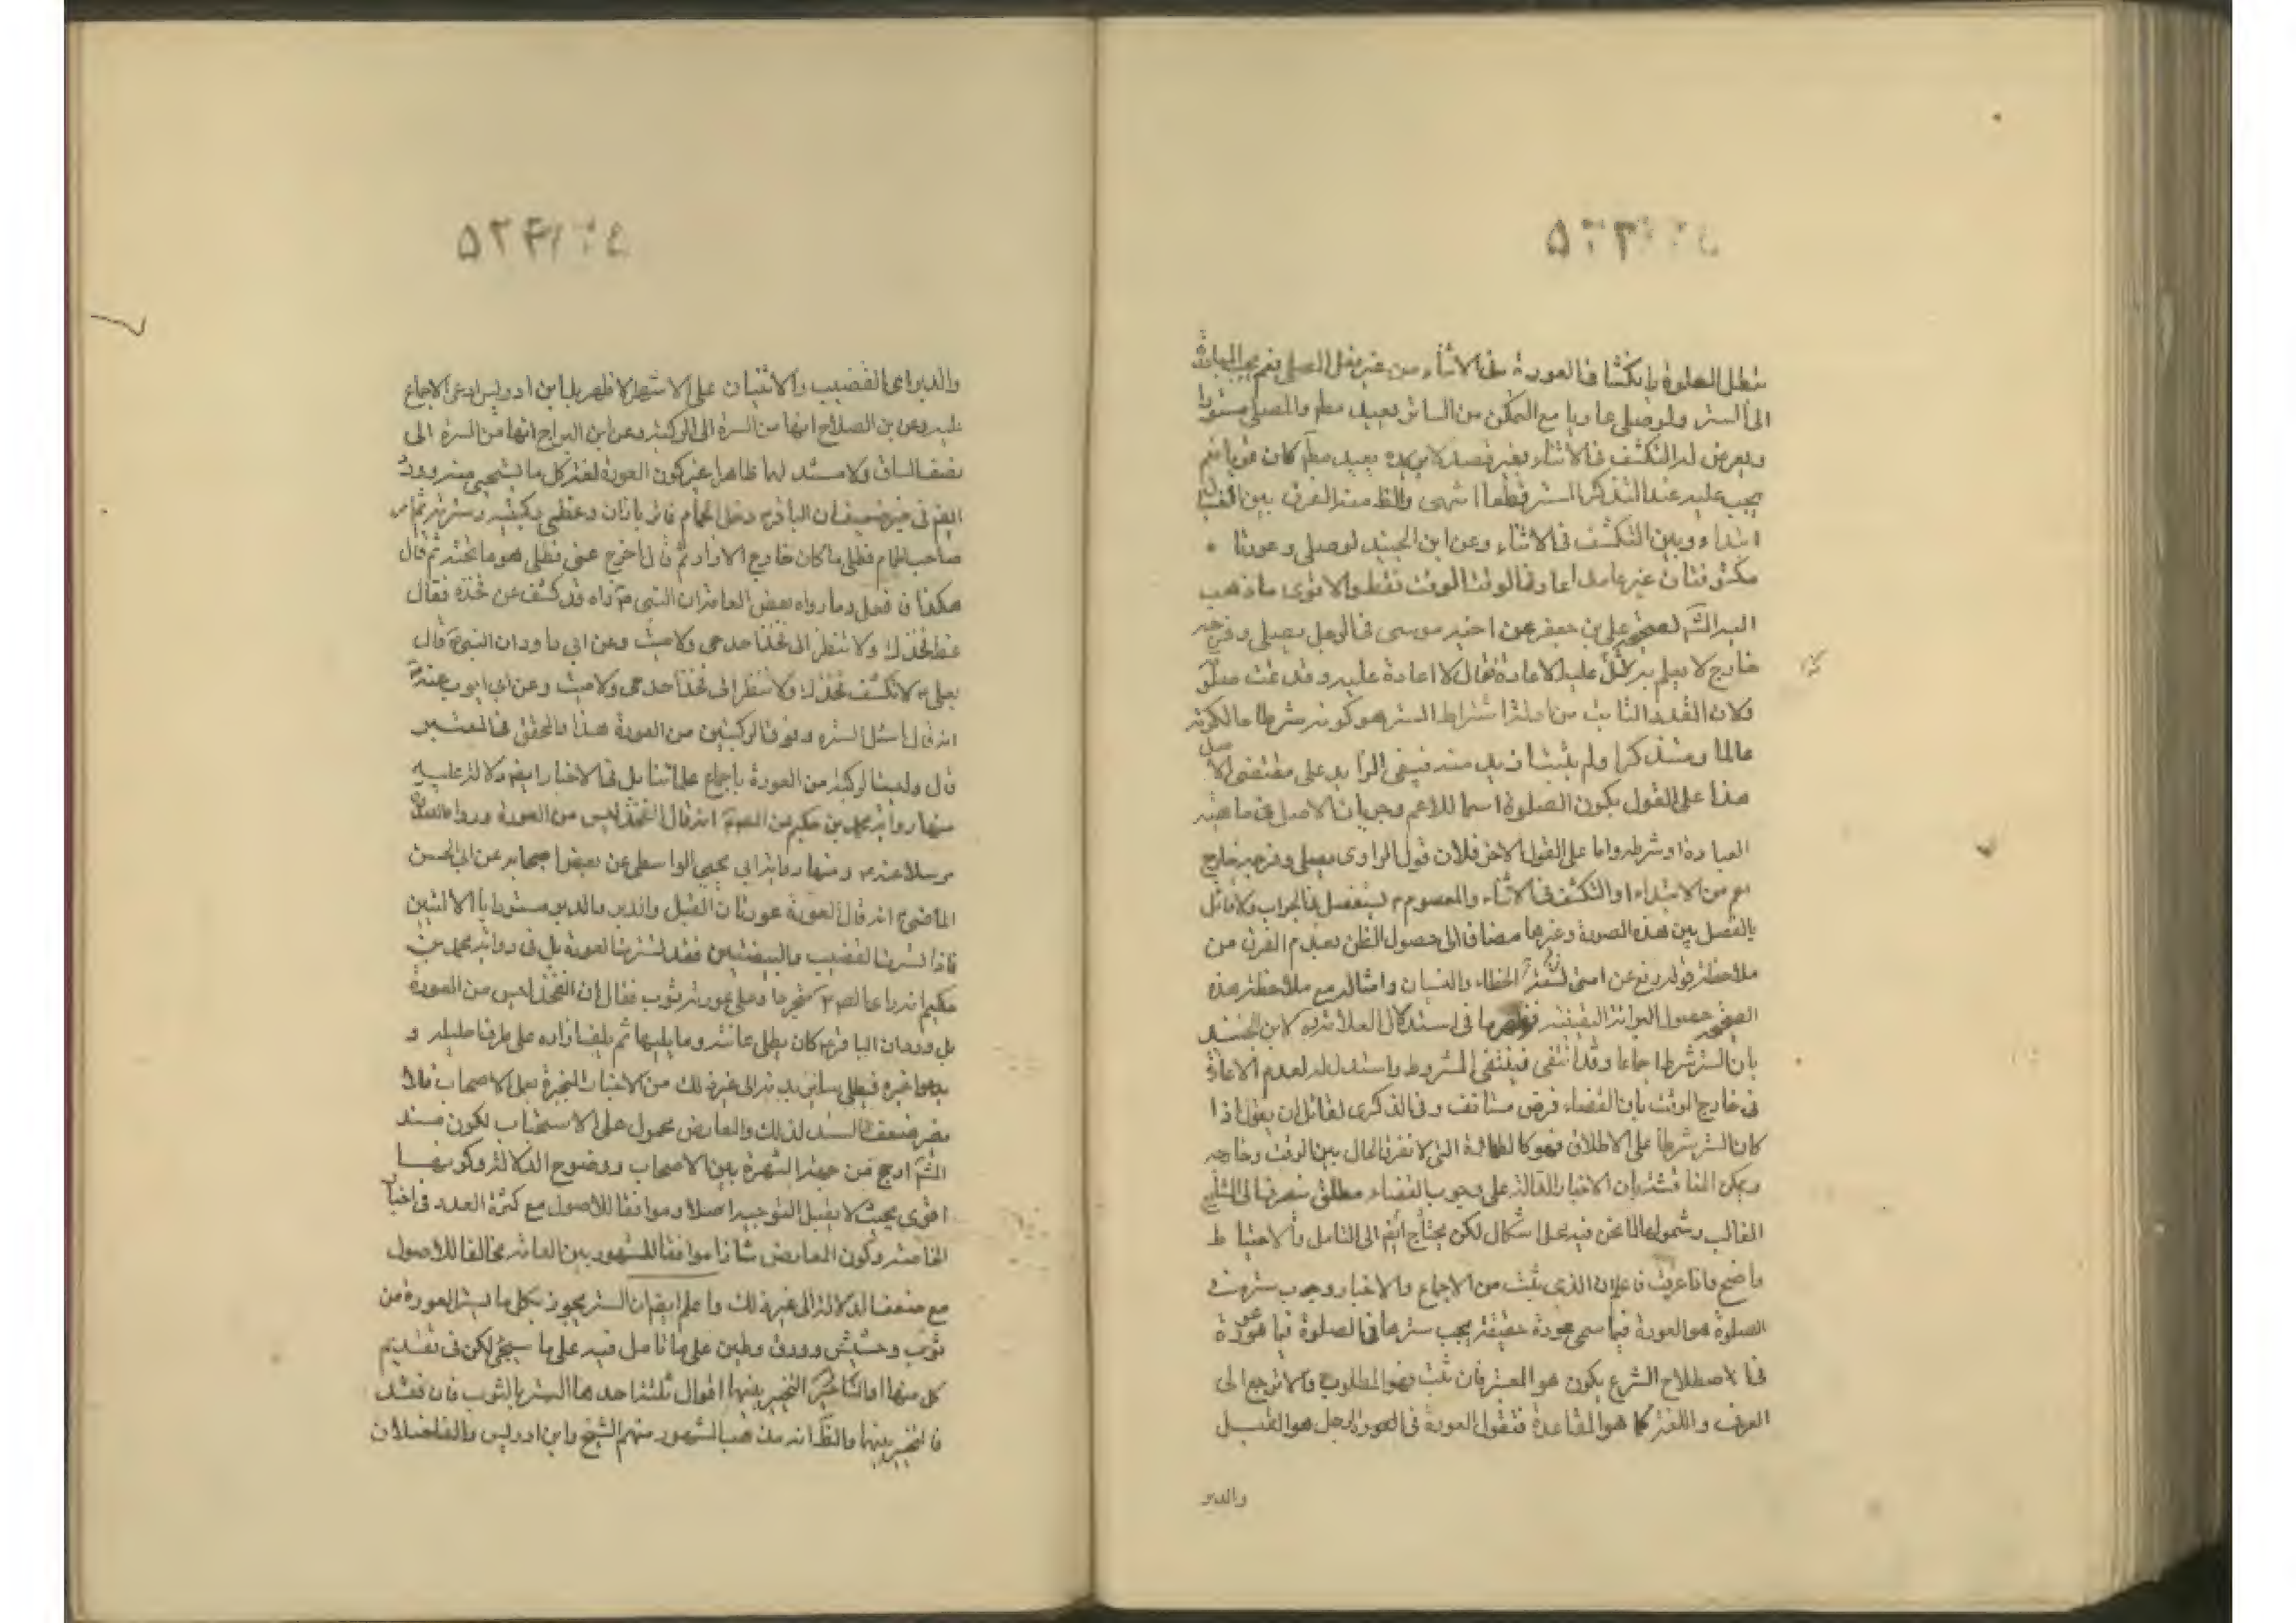 تبطل الصلوة بانكشاف العورة فى الاثناء من غير فعل المصلى نعم يجب المبادرة
الى الستر ولو صلى عاريا مع التمكن من الساتر يعيد مطم والمصلى مستورا
ويعرض له التكشف فى الاثناء بغير قصد لا يعيد مطم كان قويا نعم
يجب عليه عند التذكر الستر قطعا انتهى والظ منه الفرق بين النسيان
ابتداء وبين التكشف فى الاثناء وعن ابن الجنيد لو صلى وعورتا
مكشوفتان غير عامد اعاد فى الوقت فقط والاقوى ما ذهب
اليه الاكثر لصحيحة على بن جعفر عن اخيه موسى فى الرجل يصلى وفرجه
خارج لا يعلم به هل عليه الاعادة فقال لا اعادة عليه وقد تمت صلوته
فلان القدر الثابت من اشتراط الستر هو كونه شرطا حالكونه
عالما ومتذكرا ولم يثبت ازيد منه فينفى الزايد على مقتضى الاصل
هذا على القول بكون الصلوة اسما للاعم وجريان الاصل فى ماهية
العبادة او شرطه واما على القول الاخر فلان قول الراوى يصلى وفرجه خارج
اعم من الابتداء او التكشف فى الاثناء والمعصوم لم يستفصل فى الجواب ولا قائل
بالفصل بين هذه الصورة وغيرها مضافا الى حصول الظن بعدم الفرق من
ملاحظة قوله رفع عن امتى تسعة الخطاء والنسيان وامثاله مع ملاحظة هذه
الصحيحة حصول البرائة اليقينية فظهر ما فى استدلال العلامة ره لابن الجنيد
بان الستر شرط اجماعا وقد انتفى فينتفى المشروط واستدل له لعدم الاعادة
فى خارج الوقت بان القضاء فرض مستانف وفى الذكرى لقائل ان يقول اذا
كان الستر شرطا على الاطلاق فهو كالطهارة التى لا تفرق الحال بين الوقت وخارجه
ويمكن المناقشة بان الاخبار الدالة على وجوب القضاء مطلق منصرفة الى الشايع
الغالب وشموله لما نحن فيه محل اشكال لكن يحتاج ايضم الى التامل والاحتياط
واضح واذا عرفت فاعلم ان الذى يثبت من الاجماع والاخبار وجوب ستره فى
الصلوة هو العورة فما سمى عورة حقيقة يجب سترها فى الصلوة فما هو عورة
فى الاصطلاح الشرع يكون هو المعتبر فان ثبت فهو المطلوب والا نرجع الى
العرف واللغة كما هو القاعدة فنقول العورة فى العورة الرجل هو القبل
والدبر
والدبر اعنى القضيب والانثيان على الاشهر الاظهر بل ابن ادريس ادعى الاجماع
عليه وعن ابى الصلاح انها من السرة الى الركبة وعن ابن البراج انها من السرة الى
نصف الساق ولا مستند لهما ظاهرا غير كون العورة لغة كل ما يستحيى منه وورد
ايضم فى خبر ضعيف ان الباقر ع دخل الحمام فاتزر بازار وغطى ركبتيه وسرته ثم امر
صاحب الحمام فطلى ما كان خارج الازار ثم قال اخرج عنى فطلى هو ما تحته ثم قال
هكذا فافعل وما رواه بعض العامة ان النبى ص راه قد كشف عن فخذه فقال
غط فخذك ولا تنظر الى فخذ احد حى ولا ميت وعن ابى داود ان النبى ص قال
لعلى ع لا تكشف فخذك ولا تنظر الى فخذ احد حى ولا ميت وعن ابى ايوب عنه ص
انه قال اسفل السرة وفوق الركبتين من العورة هذا والمحقق فى المعتبر
قال وليست الركبة من العورة باجماع علمائنا بل فى الاخبار ايضم دلالة عليه
منها رواية محمد بن حكيم عن الصم انه قال الفخذ ليس من العورة وروا الصدوق
مرسلا عنه ع ومنها رواية ابى يحيى الواسطى عن بعض اصحابه عن ابى الحسن
الماضى ع انه قال العورة عورتان القبل والدبر والدبر مستور بالاليتين
فاذا سترت القضيب والبيضتين فقد سترت العورة بل فى رواية محمد بن
حكيم انه راى الصم متجردا وعلى عورته ثوب فقال ان الفخذ ليس من العورة
بل ورد ان الباقر ع كان يطلى عانته وما يليها ثم يلف ازاره على طرف احليله و
يدعوا غيره فيطلى ساير بدنه الى غير ذلك من الاخبار المنجبرة بعمل الاصحاب فلا
يضر ضعف السند لذلك والمعارض محمول على الاستحباب لكون مستند
المشم ارجح من جهة الشهرة بين الاصحاب ووضوح الدلالة وكونها
اقوى بحيث لا يقبل التوجيه اصلا وموافقا للاصول مع كثرة العدد فى اخبار
الخاصة وكون المعارض شاذا موافقا للمشهور بين العامة مخالفا للاصول
مع ضعف الدلالة الى غير ذلك واعلم ايضم ان الستر يجوز بكل ما يستر العورة من
ثوب وحشيش وورق وطين على ما تامل فيه على ما سيجئ لكن فى تقديم
كل منها او التاخير او التخيير بينها اقوال ثلثة احدها الستر بالثوب فان فقد
فالتخيير بينها والظ انه مذهب المشهور منهم الشيخ وابن ادريس والفاضلان